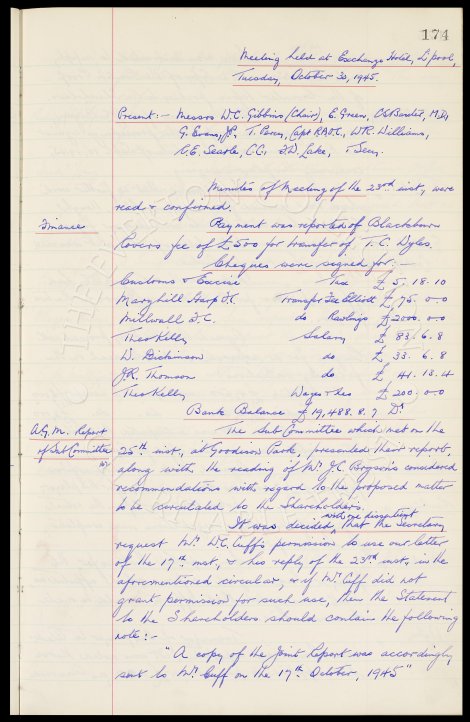 174
Meeting held at Exchange Hotel, L'pool,
Tuesday, October 30, 1945.
Present:- Messrs W.C. Gibbins (Chair), E. Green, C.S. Baxter, M.D.,
G. Evans, J.P., T. Percy, Capt R.A.O.C., W.R. Williams,
C.E. Searle, C.C., F.W. Lake, & Secy.
Minutes of Meeting of the 23rd inst, were
read & confirmed.
Finance
Payment was reported of Blackburn
Rovers fee of £500 for transfer of T.C. Dyke.
Cheques were signed for:-
Customs & Excise Tax £5.18.10
Maryhill Harp F.C. Transfer Fee Elliott £75.0.0
Millwall F.C. do Rawlings £2000.0.0
Theo Kelly Salary £83.6.8
W. Dickinson do £33.6.8
J.R. Thomson do £41.13.4
Theo Kelly Wages &es £200.0.0
Bank Balance £19,488.8.7 Dr
A.G.M. Report
of Sub Committee
The Sub Committee which met on the
25th inst, at Goodison Park, presented their report,
along with the reading of Mr J.C. Bryson's considered
recommendations with regard to the proposed matter
to be circulated to the Shareholders.
with one dissentient
It was decided that the Secretary
request Mr W.C. Cuff's permission to use our letter
of the 17th inst, & his reply of the 23rd inst, in the
aforementioned circular, & if Mr Cuff did not
grant permission for such use, then the Statement
to the Shareholders should contain the following
note:-
"A copy of the Joint Report was accordingly
sent to Mr Cuff on the 17th October, 1945"